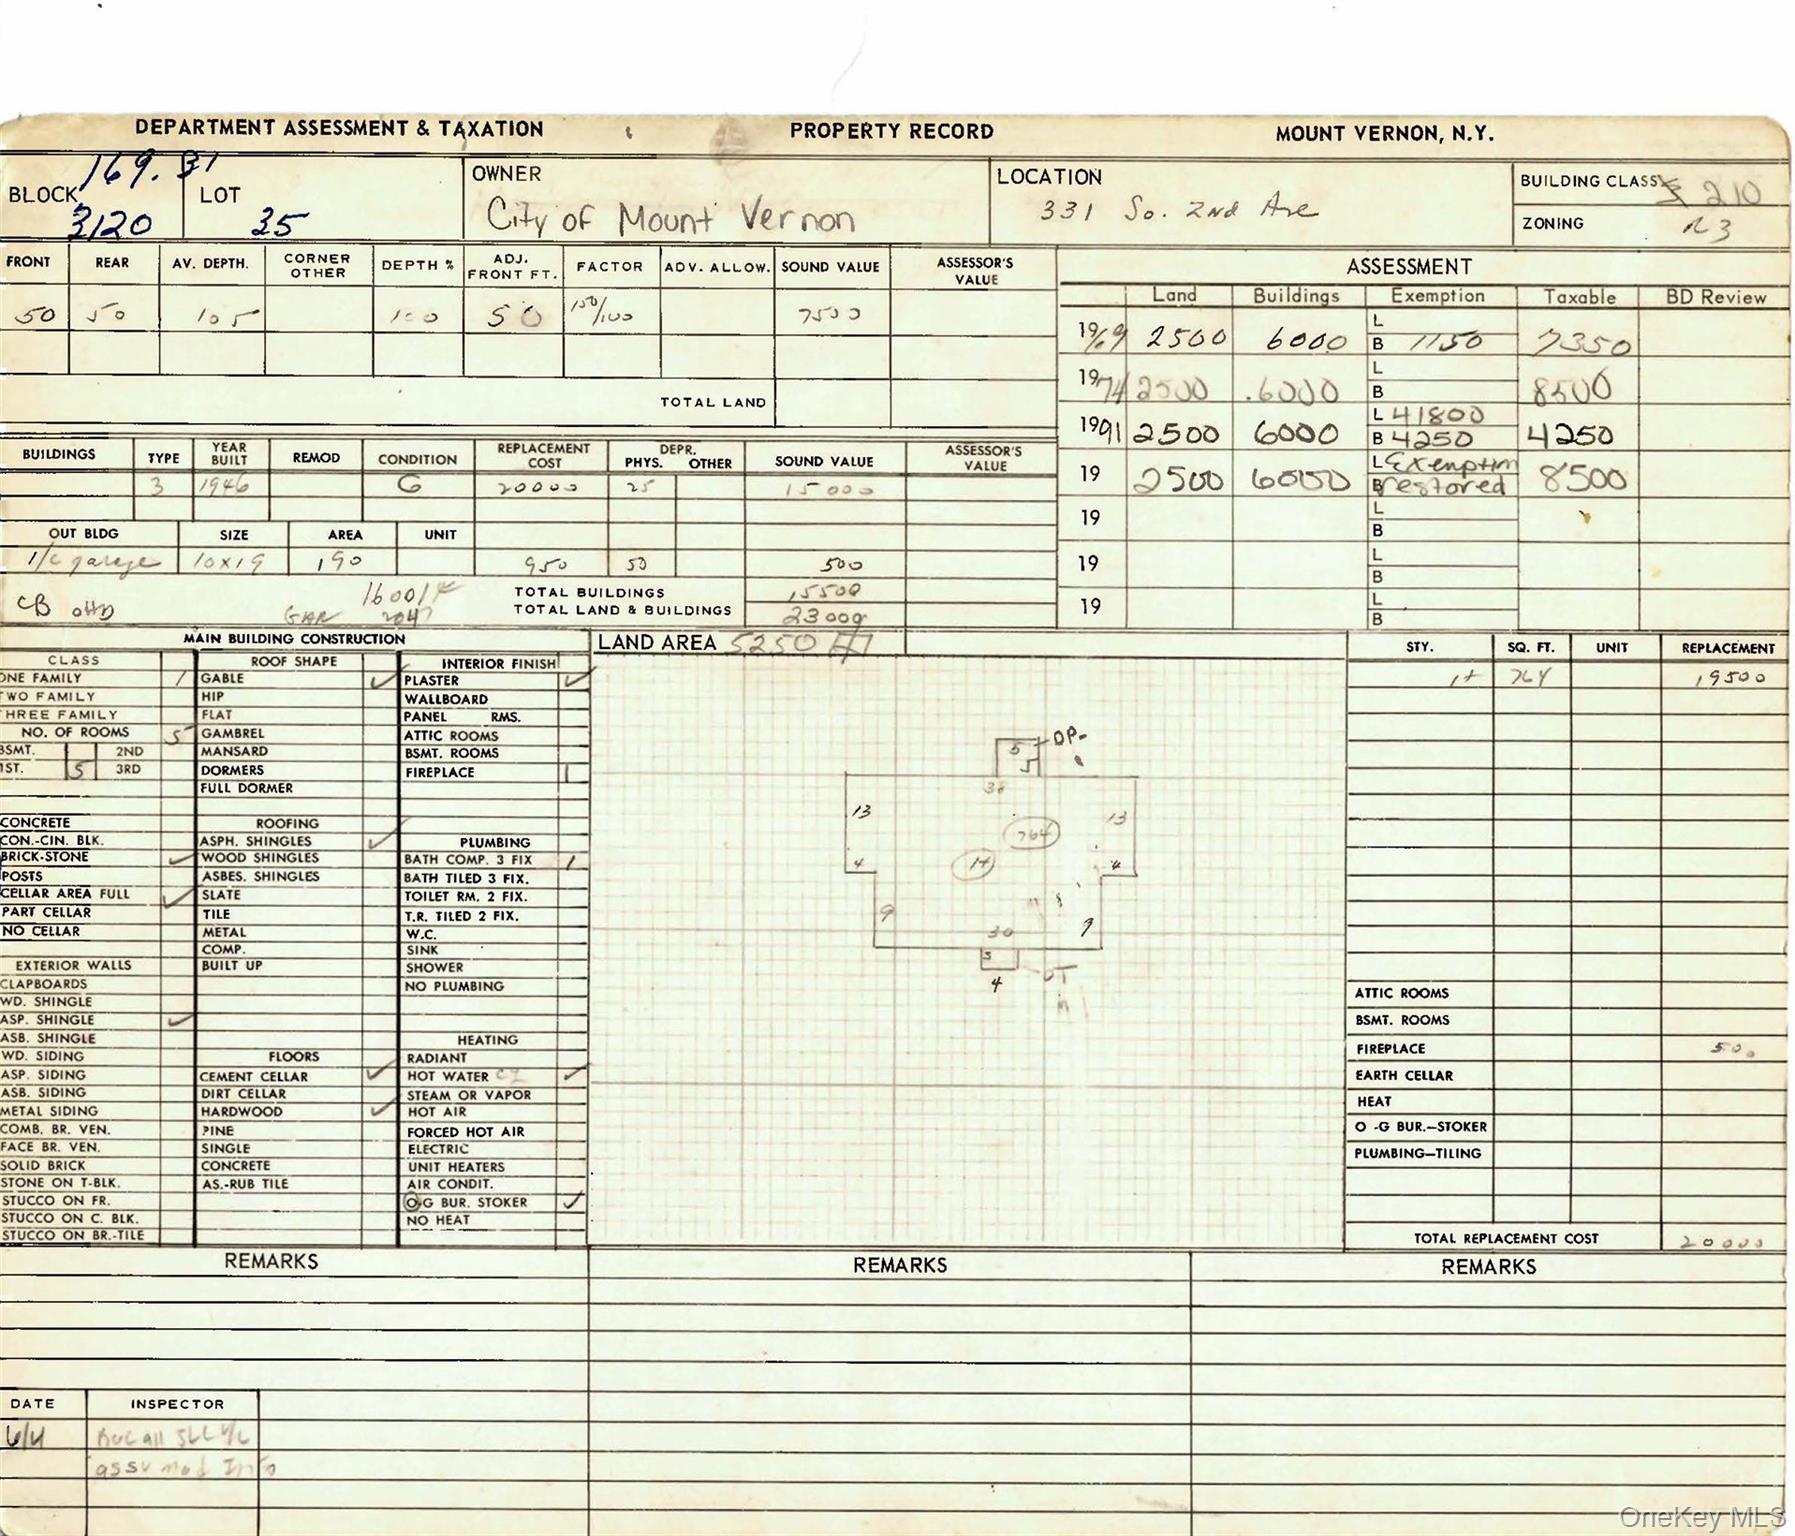 DEPARTMENT ASSESSMENT & TAXATION PROPERTY RECORD MOUNT VERNON, N.Y.
BLOCK 169.31 3120 LOT 35 OWNER City of Mount Vernon LOCATION 331 So. 2nd Ave BUILDING CLASS 210
ZONING R3
FRONT REAR AV. DEPTH. CORNER OTHER DEPTH % ADJ. FRONT FT. FACTOR ADV. ALLOW. SOUND VALUE ASSESSOR'S VALUE
50 50 105 100 50 150/100 7500
TOTAL LAND
ASSESSMENT
Land Buildings Exemption Taxable BD Review
1969 2500 6000 L B 1150 7350
1974 2500 6000 L B 8500
1991 2500 6000 L 41800 B 4250 4250
19 2500 6000 L Exemption B restored 8500
19 L B
19 L B
19 L B
BUILDINGS TYPE YEAR BUILT REMOD CONDITION REPLACEMENT COST DEPR. PHYS. OTHER SOUND VALUE ASSESSOR'S VALUE
3 1946 G 20000 25 15000
OUT BLDG SIZE AREA UNIT
1/c garage 10x19 190 950 50 500
CB OHD 16001 GAR TOTAL BUILDINGS 15500
TOTAL LAND & BUILDINGS 23000
MAIN BUILDING CONSTRUCTION
CLASS
ONE FAMILY 1
TWO FAMILY
THREE FAMILY
NO. OF ROOMS 5
BSMT. 2ND
1ST. 5 3RD
CONCRETE
CON.-CIN. BLK.
BRICK-STONE ✓
POSTS
CELLAR AREA FULL ✓
PART CELLAR
NO CELLAR
EXTERIOR WALLS
CLAPBOARDS
WD. SHINGLE
ASP. SHINGLE ✓
ASB. SHINGLE
WD. SIDING
ASP. SIDING
ASB. SIDING
METAL SIDING
COMB. BR. VEN.
FACE BR. VEN.
SOLID BRICK
STONE ON T-BLK.
STUCCO ON FR.
STUCCO ON C. BLK.
STUCCO ON BR.-TILE
ROOF SHAPE
GABLE ✓
HIP
FLAT
GAMBREL
MANSARD
DORMERS
FULL DORMER
ROOFING
ASPH. SHINGLES ✓
WOOD SHINGLES
ASBES. SHINGLES
SLATE
TILE
METAL
COMP.
BUILT UP
FLOORS
CEMENT CELLAR ✓
DIRT CELLAR
HARDWOOD ✓
PINE
SINGLE
CONCRETE
AS.-RUB TILE
INTERIOR FINISH
PLASTER ✓
WALLBOARD
PANEL RMS.
ATTIC ROOMS
BSMT. ROOMS
FIREPLACE 1
PLUMBING
BATH COMP. 3 FIX 1
BATH TILED 3 FIX.
TOILET RM. 2 FIX.
T.R. TILED 2 FIX.
W.C.
SINK
SHOWER
NO PLUMBING
HEATING
RADIANT
HOT WATER ✓
STEAM OR VAPOR
HOT AIR
FORCED HOT AIR
ELECTRIC
UNIT HEATERS
AIR CONDIT.
O-G BUR. STOKER ✓
NO HEAT
LAND AREA 5250
5 OP-
5
38
13 13
764
1+
4 4
9 9
30
3
4
STY. SQ. FT. UNIT REPLACEMENT
1+ 764 19500
ATTIC ROOMS
BSMT. ROOMS
FIREPLACE 500
EARTH CELLAR
HEAT
O -G BUR.—STOKER
PLUMBING—TILING
TOTAL REPLACEMENT COST 20000
REMARKS REMARKS REMARKS
DATE INSPECTOR
OneKey MLS